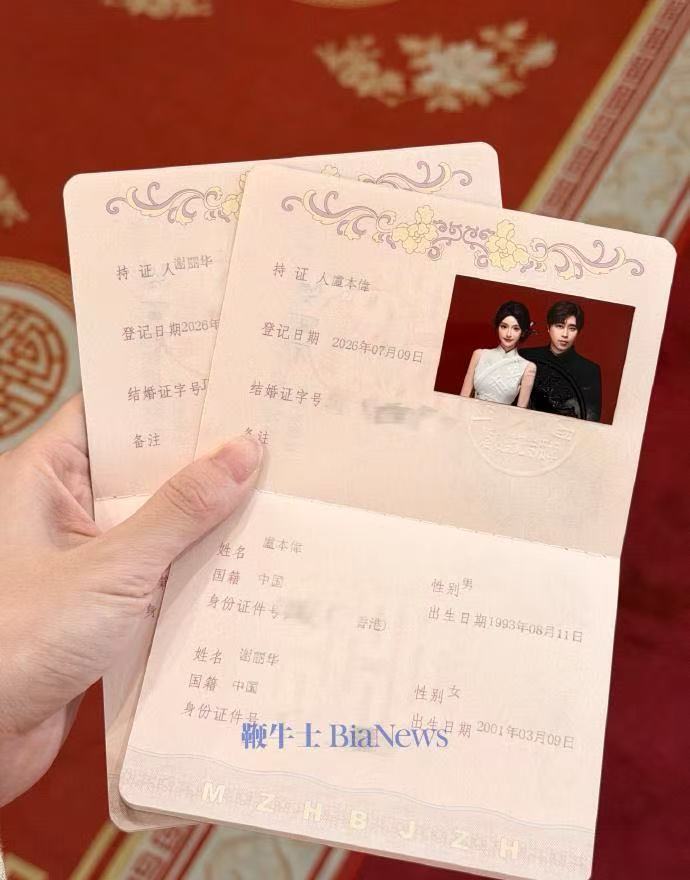 持证人谢丽华
登记日期2026年
结婚证字号
备注
持证人盧本偉
登记日期 2026年07月09日
结婚证字号
备注
姓名 盧本偉
国籍 中国
性别男
身份证件号
香港)
出生日期1993年08月11日
姓名 谢丽华
国籍 中国
性别女
身份证件号
出生日期 2001年03月09日
身
鞭牛士 BiaNews
MZHBJZH